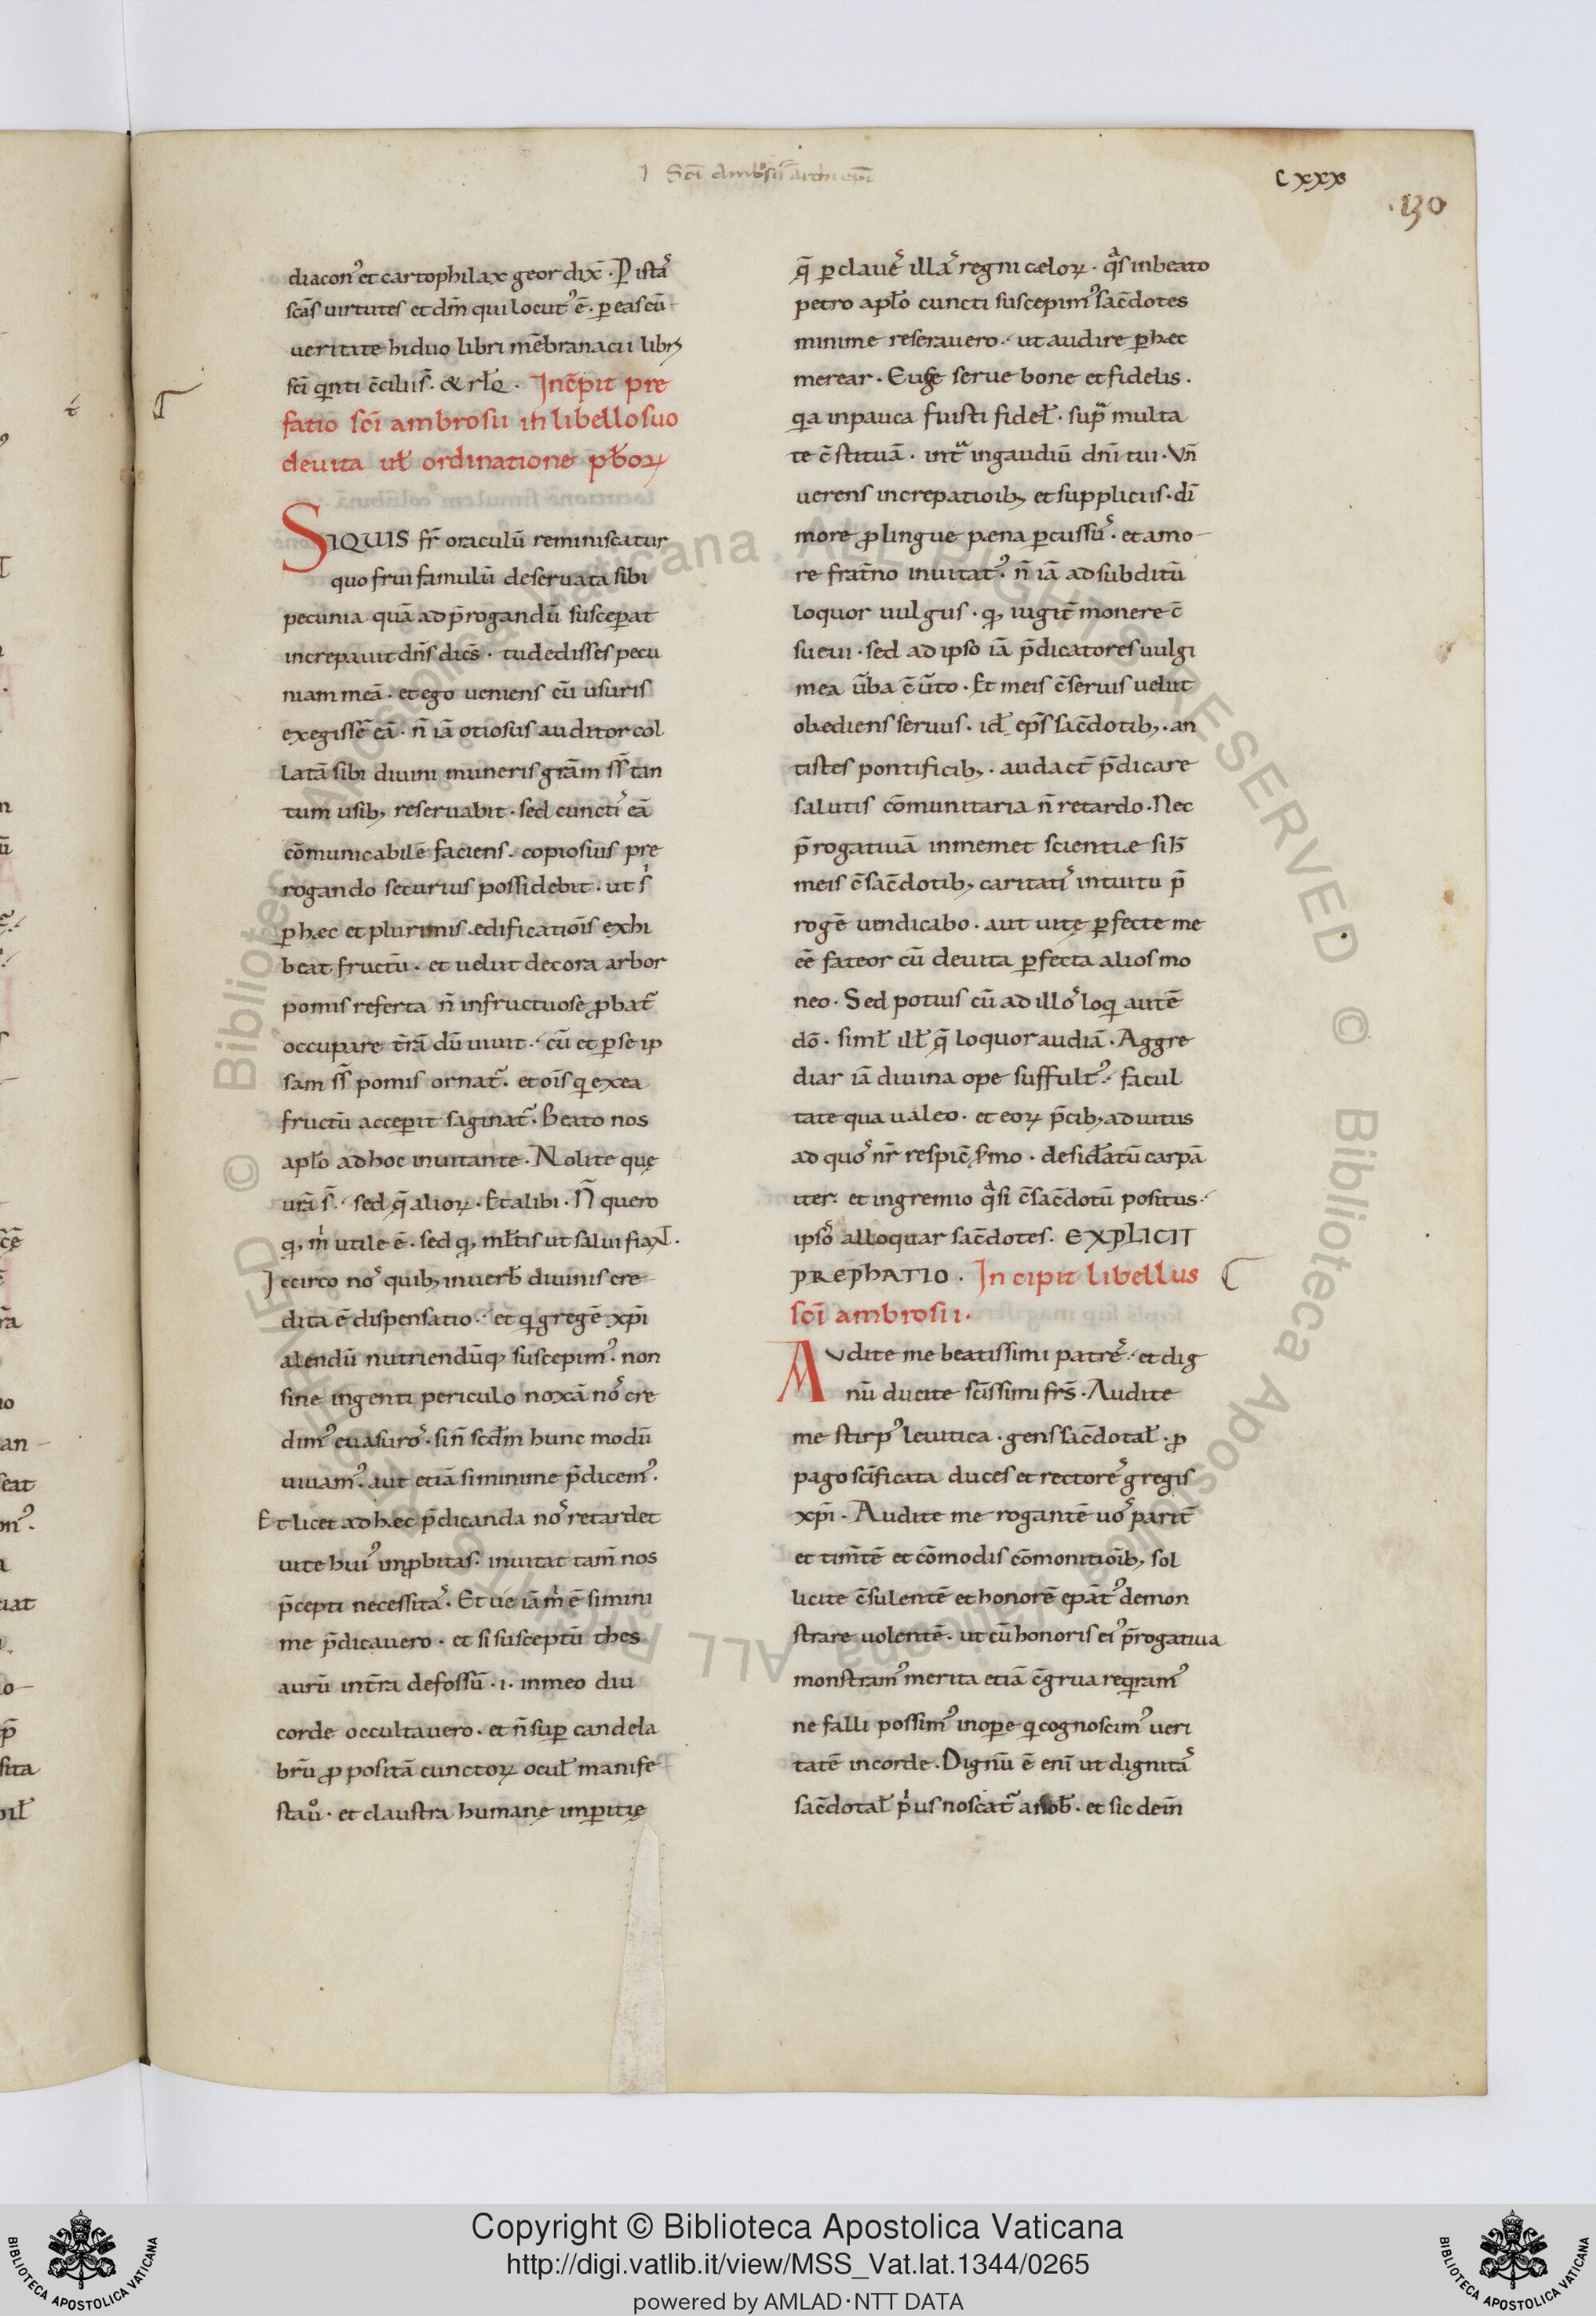 Scī ambrosii archiepī
cxxx
130
diacon᾽ et cartophilax geor dix̄ · P istaſ
scāſ uirtuteſ et dm̄ qui locut᾽ ē · ꝑ eaſ cū
ueritate hi duo libri mēbranacii libꝝ
scī qinti c̄cilii s̄ · & rłq · Incēpit pre
fatio scī ambrosii in libello suo
de uita uł ordinatione pƀoꝝ
SIQUIS fr̄ oraculū reminiscatur
quo frui famulū deseruata sibi
pecunia quā ad p̄rogandū susceꝑat
increpauit dn̄s dicēs · tu dedisses pecu
niam meā · et ego ueniens cū usuris
exegissē eā · n̄ iā otiosus auditor col
latā sibi diuini muneris grām ss̄ tan
tum usib; reseruabit · sed cunctiſ eā
cōmunicabilē faciens · copiosius pre
rogando securius possidebit · ut s̄
ꝑ hæc et plurimis ædificatiōis exhi
beat fructū · et uelut decora arbor
pomis referta n̄ infructuose ꝓbat᷑
occupare t̄rā dū uiuit · cū et ꝑ se ip
sam ss̄ pomis ornat᷑ · et oīs qi ex ea
fructū acceꝑit saginat᷑ · Beato nos
apło ad hoc inuitante · Nolite quę
urā s̄ · sed q̄ alioꝝ · Et alibi · N̄ quero
q; m utile ē · sed q; młtis ut salui fiaꝴ ·
Iccirco noſ quib; in uerƀ diuinis cre
dita ē dispensatio · et qi gregē xp̄i
alendū nutriendūq; suscepim᾽ · non
sine ingenti periculo noxā noſ cre
dim᾽ euasuroſ · sin̄ scdm̄ hunc modū
uiuam᾽ · aut etiā si minime p̄dicem᾽ ·
Et licet ad hæc p̄dicanda noſ retardet
uite hui᾽ imꝓbitas · inuitat tam̄ nos
p̄cepti necessitaſ · Et ue iā m ē si mini
me p̄dicauero · et si susceptū thes
aurū int̄ra defossū · i · in meo diu
corde occultauero · et n̄ suꝑ candela
brū ꝓpositā cunctoꝝ ocuł manife
stau° · et claustra humanę imꝑitię
q̄ ꝑ claueſ illaſ regni cæloꝝ · qaſ in beato
petro apło cuncti suscepim᾽ sac̄dotes
minime reserauero · ut audire ꝑ hæc
merear · Euge serue bone et fidelis ·
qia in pauca fuisti fideł · supa multa
te c̄stituā · inta in gaudiū dn̄i tui · Vn̄
uerens increpatioib; et suppliciis · di
more ꝓ lingue pæna ꝑcussuſ · et amo
re frat̄no inuitat᾽ · n̄ iā ad subditū
loquor uulgus · q; iugit̄ monere c̄
sueui · sed ad ipso iā p̄dicatores uulgi
mea ūba c̄ūto · Et meis c̄seruis uelut
obædiens seruus · id · ep̄s sac̄dotib; · an
tistes pontificib; · audact̄ p̄dicare
salutis cōmunitaria n̄ retardo · Nec
p̄rogatiuā in memet scientiæ siƀ
meis c̄sac̄dotib; caritatiſ intuitu p̄
rogē uendicabo · aut uitę ꝑfecte me
eē fateor cū de uita ꝑfecta alios mo
neo · Sed potius cū ad illoſ loqi autē
dō · simł ił q̄ loquor audiā · Aggre
diar iā diuina ope suffult᾽ · facul
tate qua ualeo · et eoꝝ p̄cib; aduitus
ad quoſ nr̄ respic̄ s̄mo · desid̄atū carpā
iter · et in gremio qasi c̄sac̄dotū positus ·
ipsoſ alloquar sac̄dotes · EXPLICIT
PREPhATIO · Incipit libellus
scī ambrosii ·
Audite me beatissimi patreſ · et dig
nū ducite scīssimi frs̄ · Audite
me stirpſ leuitica · gens sac̄dotał · ꝓ
pago scīficata duces et rectoreſ gregis
xp̄i · Audite me rogantē uoſ parit̄
et tim̄tē et cōmodis cōmonitiōib; sol
licite c̄sulentē et honorē epāt᾽ demon
strare uolentē · ut cū honoris ei᾽ p̄rogatiua
monstram᾽ merita etiā c̄grua reqiram᾽
ne falli possim᾽ in oꝑe qi cognoscim᾽ ueri
tatē in corde · Dignū ē enī ut dignitaſ
sac̄dotał pius noscat᷑ a noƀ · et sic dein̄
© Biblioteca Apostolica Vaticana ALL RIGHTS RESERVED © Biblioteca Apostolica Vaticana ALL RIGHTS RESERVED
BIBLIOTECA APOSTOLICA VATICANA
Copyright © Biblioteca Apostolica Vaticana
http://digi.vatlib.it/view/MSS_Vat.lat.1344/0265
powered by AMLAD·NTT DATA
BIBLIOTECA APOSTOLICA VATICANA